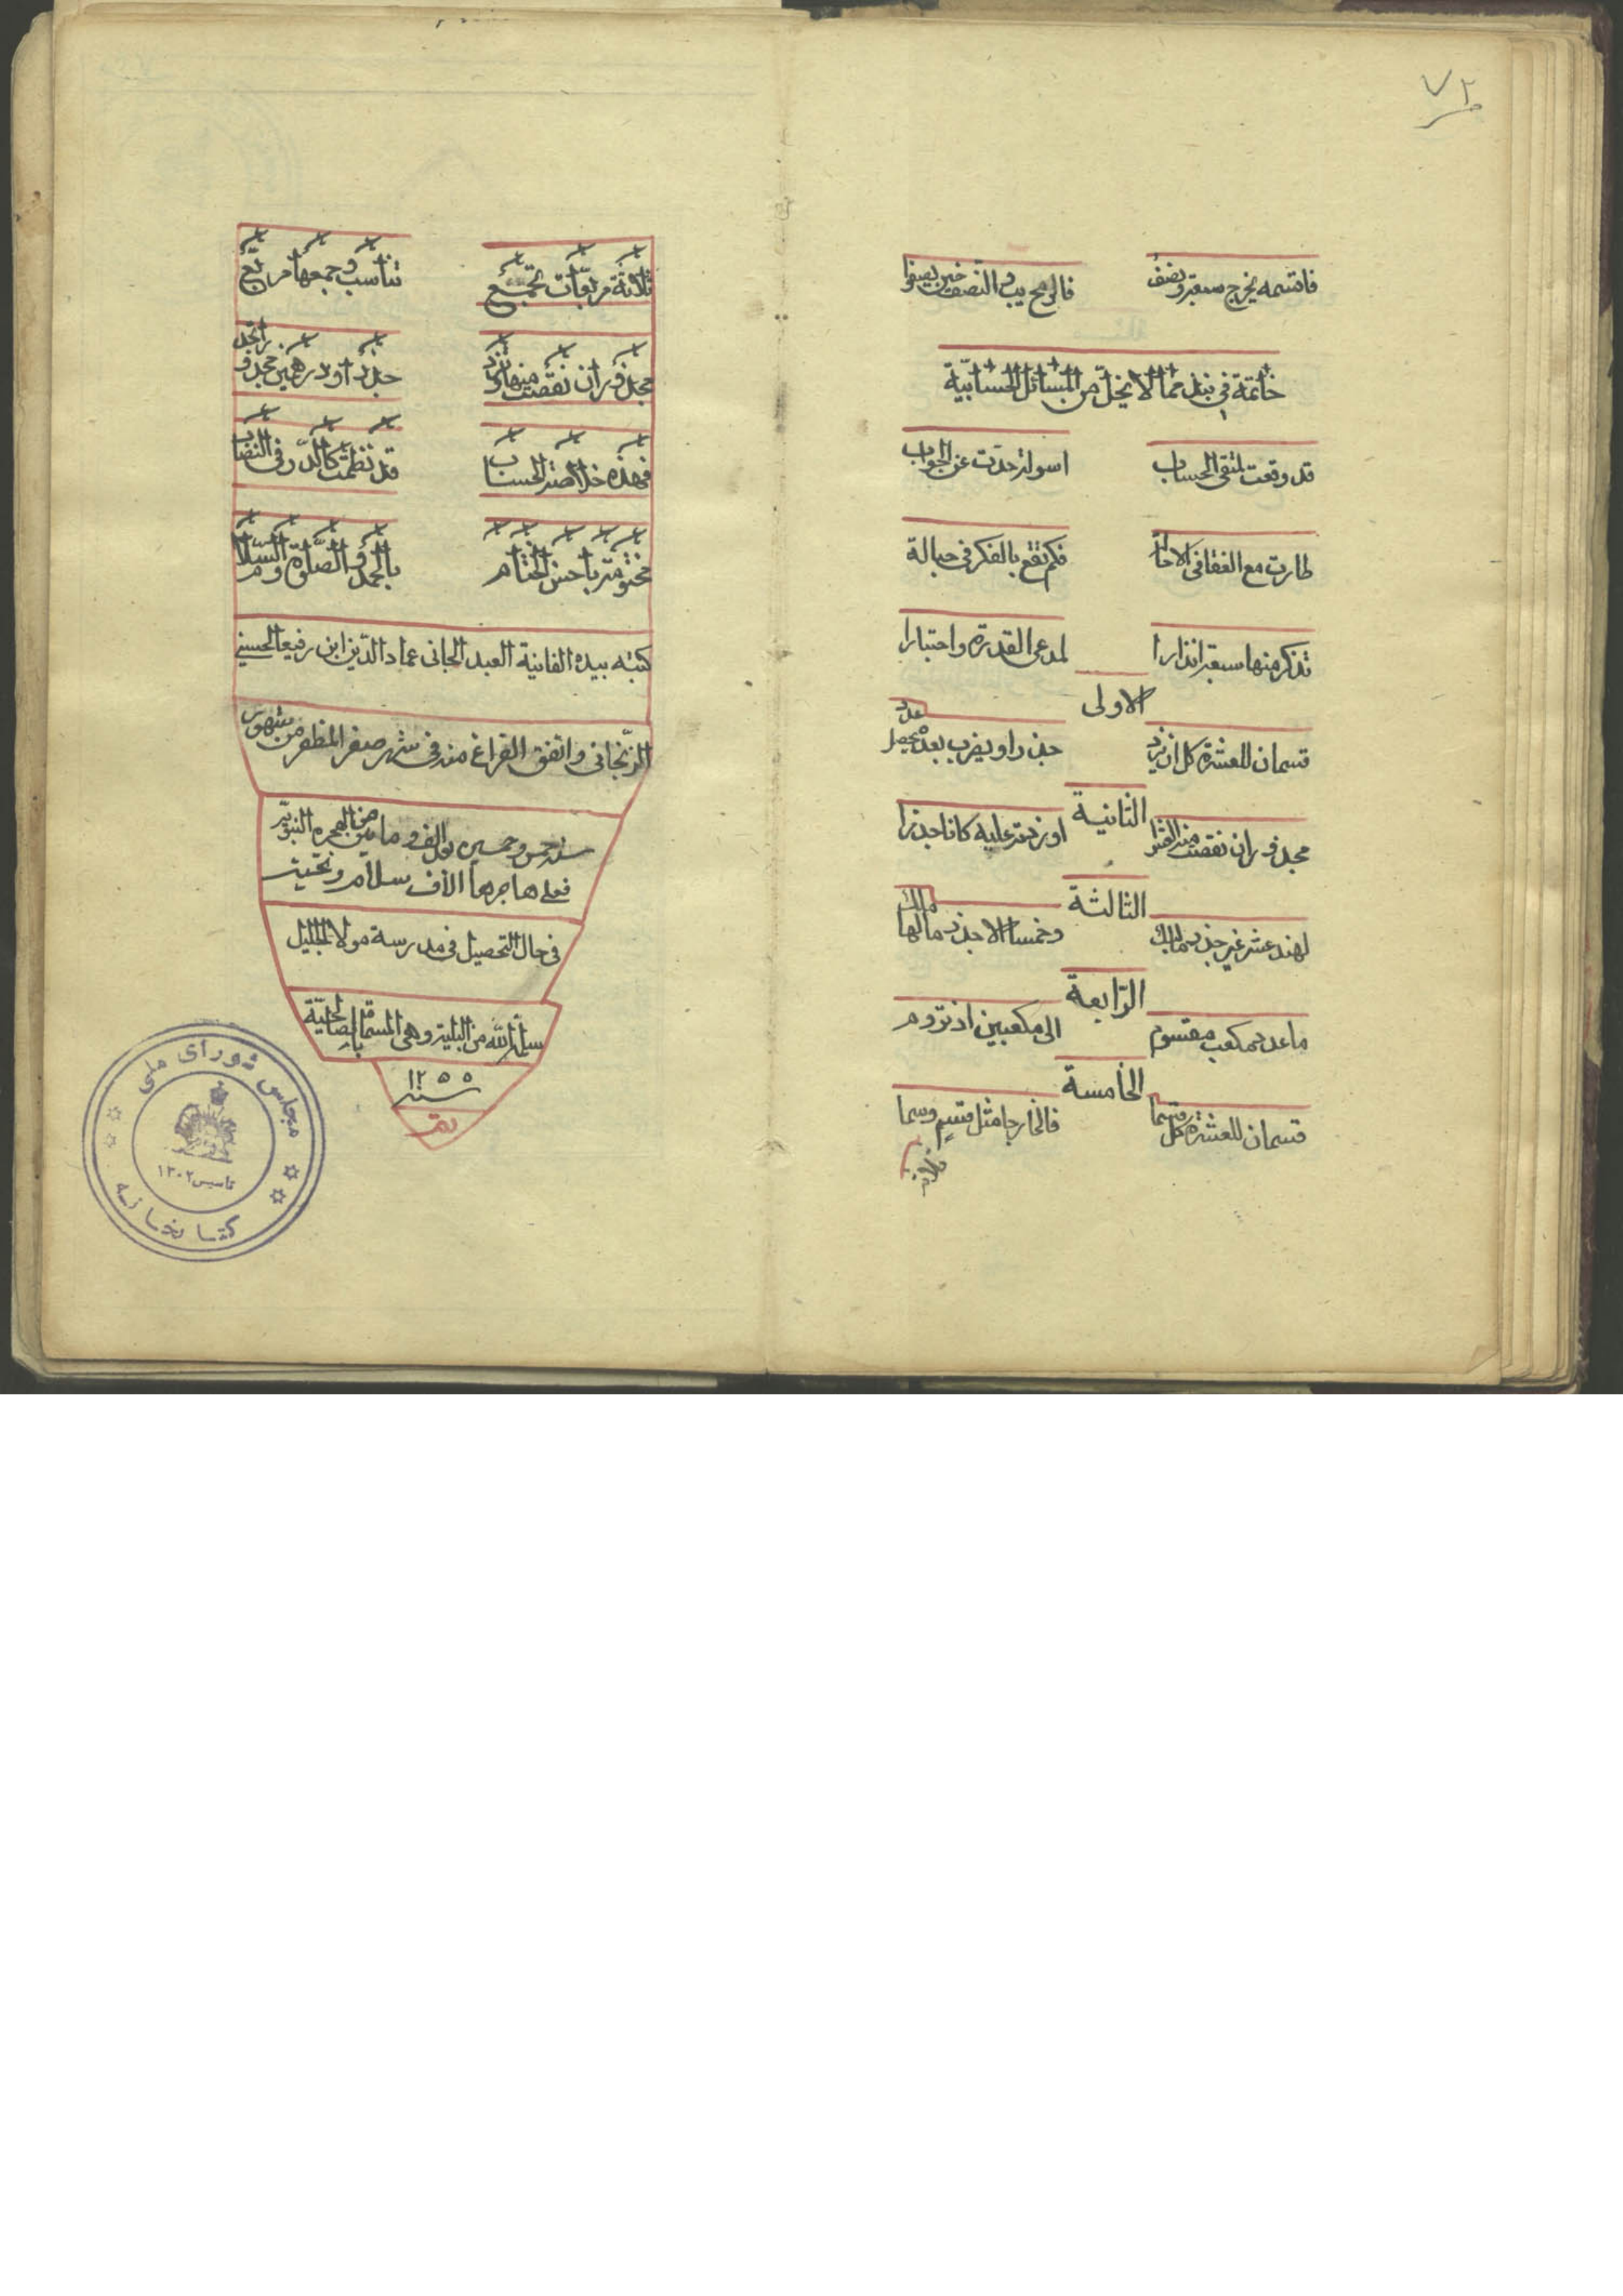 ٧٢
فاقسمه يخرج سبعة ونصف فالرمح يبدو النصف حين يصفو
خاتمة في نبذ مما لا ينحل من المسائل الحسابية
قد وقعت لمتقى الحساب اسولة حدت عن الجواب
طارت مع العنقا في الاحالة فكم تقع بالفكر في حبالة
تذكر منها سبعة انذارا لمدعى القدرة واختبارا
الاولى
قسمان للعشرة كل ان يزد جذرا ويضرب بعده يحصل عدد
الثانية
مجذور ان نقصت منه العشرا او زدته عليه كانا جذرا
الثالثة
لهند عشر غير جذر مالك وخمسا الا جذر مالها ملك
الرابعة
ما عدد مكعب مقسوم الى مكعبين اذ تروم
الخامسة
قسمان للعشرة كل قسما فالخارجا مثل قسيم وسما
ثلاثة
ثلاثة مربعات تجمع تناسب وجمعها مربع
مجذور ان نقصت منها او تزد جذرا ودرهمين مجذورا تجد
فهذه خلاصة الحساب قد نظمت كالدر في النصاب
مختومة باحسن الختام بالحمد والصلوة والسلام
كتبه بيده الفانية العبد الجانى عماد الدين ابن رفيعا الحسينى
الزنجانى واتفق الفراغ منه في شهر صفر المظفر من شهور
سنه خمس وخمسين بعد الف و مأتين من الهجرة النبوية
فعلى هاجرها الاف سلام وتحيت
في حال التحصيل في مدرسة مولا الجليل
سلمه الله من البلية وهى المسماة بالصالحية
سنه ١٢٥٥
تمت
مجلس شورای ملی
تاسیس ١٣٠٢
کتابخانه